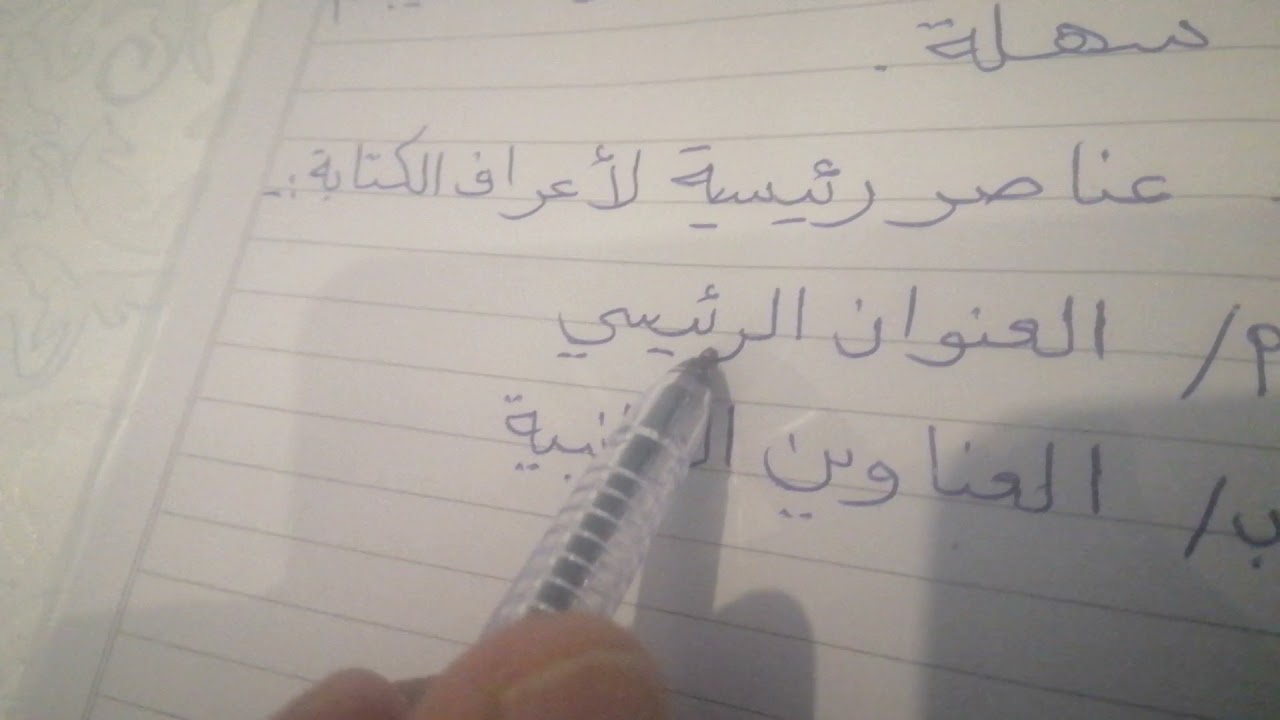 سهلة .
عناصر رئيسية لأعراف الكتابة :-
م/ العنوان الرئيسي
ب/ العناوين